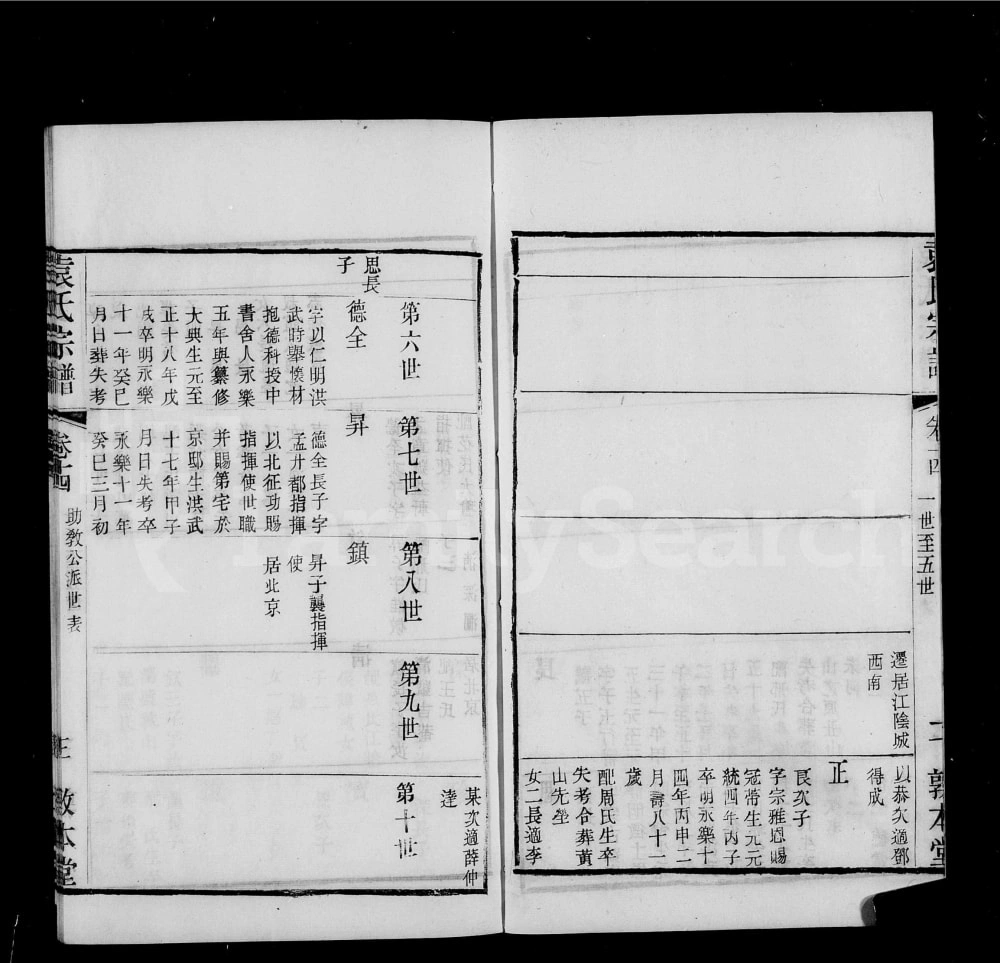 袁氏宗譜
卷十四
一世至五世
二
敦本堂
遷居江陰城
西南
以恭次適鄧
得成
正
艮次子
字宗雅恩賜
冠帶生元元
統四年丙子
卒明永樂十
四年丙申二
月壽八十一
歲
配周氏生卒
失考合葬黃
山先塋
女二長適李
某次適薛仲
達
第六世
第七世
第八世
第九世
第十世
思長
子
德全
字以仁明洪
武時舉懷材
抱德科授中
書舍人永樂
五年與纂修
大典生元至
正十八年戊
戌卒明永樂
十一年癸巳
月日葬失考
昇
德全長子字
孟升都指揮
以北征功賜
指揮使世職
并賜第宅於
京邸生洪武
十七年甲子
月日失考卒
永樂十一年
癸巳三月初
鎮
昇子襲指揮
使
居北京
袁氏宗譜
卷十四
助教公派世表
三
敦本堂
FamilySearch